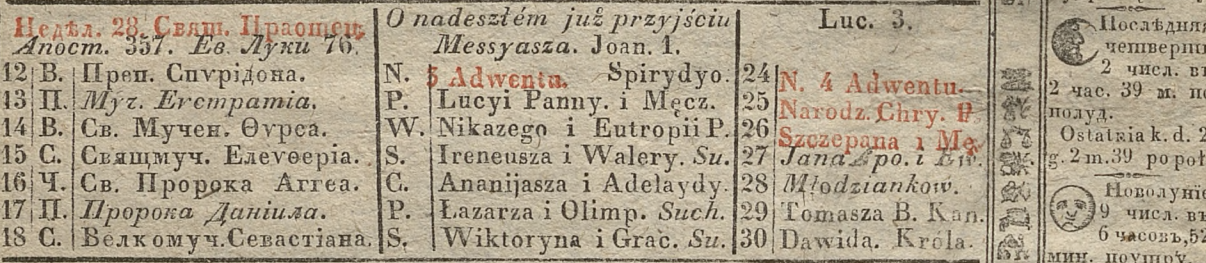 Недѣл. 28. Свящ. Праотец.
Апост. 357. Ев. Луки 76.
12 В. Преп. Спѵрідона.
13 П. Муч. Еѵстратіа.
14 В. Св. Мучен. Ѳѵрса.
15 С. Свящмуч. Елеуѳеріа.
16 Ч. Св. Пророка Аггеа.
17 П. Пророка Даніила.
18 С. Велкомуч. Севастіана.
O nadeszłém już przyjściu
Messyasza. Joan. 1.
N. 3 Adwentu. Spirydyo.
P. Lucyi Panny. i Męcz.
W. Nikazego i Eutropii P.
S. Ireneusza i Walery. Su.
C. Ananijasza i Adelaydy.
P. Łazarza i Olimp. Such.
S. Wiktoryna i Grac. Su.
Luc. 3.
24 N. 4 Adwentu.
25 Narodz. Chry. P.
26 Szczepana i Mę.
27 Jana Apo. i Ew.
28 Młodzianków.
29 Tomasza B. Kan.
30 Dawida. Króla.
Послѣдняя
четверть
2 числ. въ
2 час. 39 м. по
полуд.
Ostatnia k. d. 2
g. 2 m. 39 popoł
Новолуніе
9 числ. въ
6 часовъ, 52
мин. поутру.